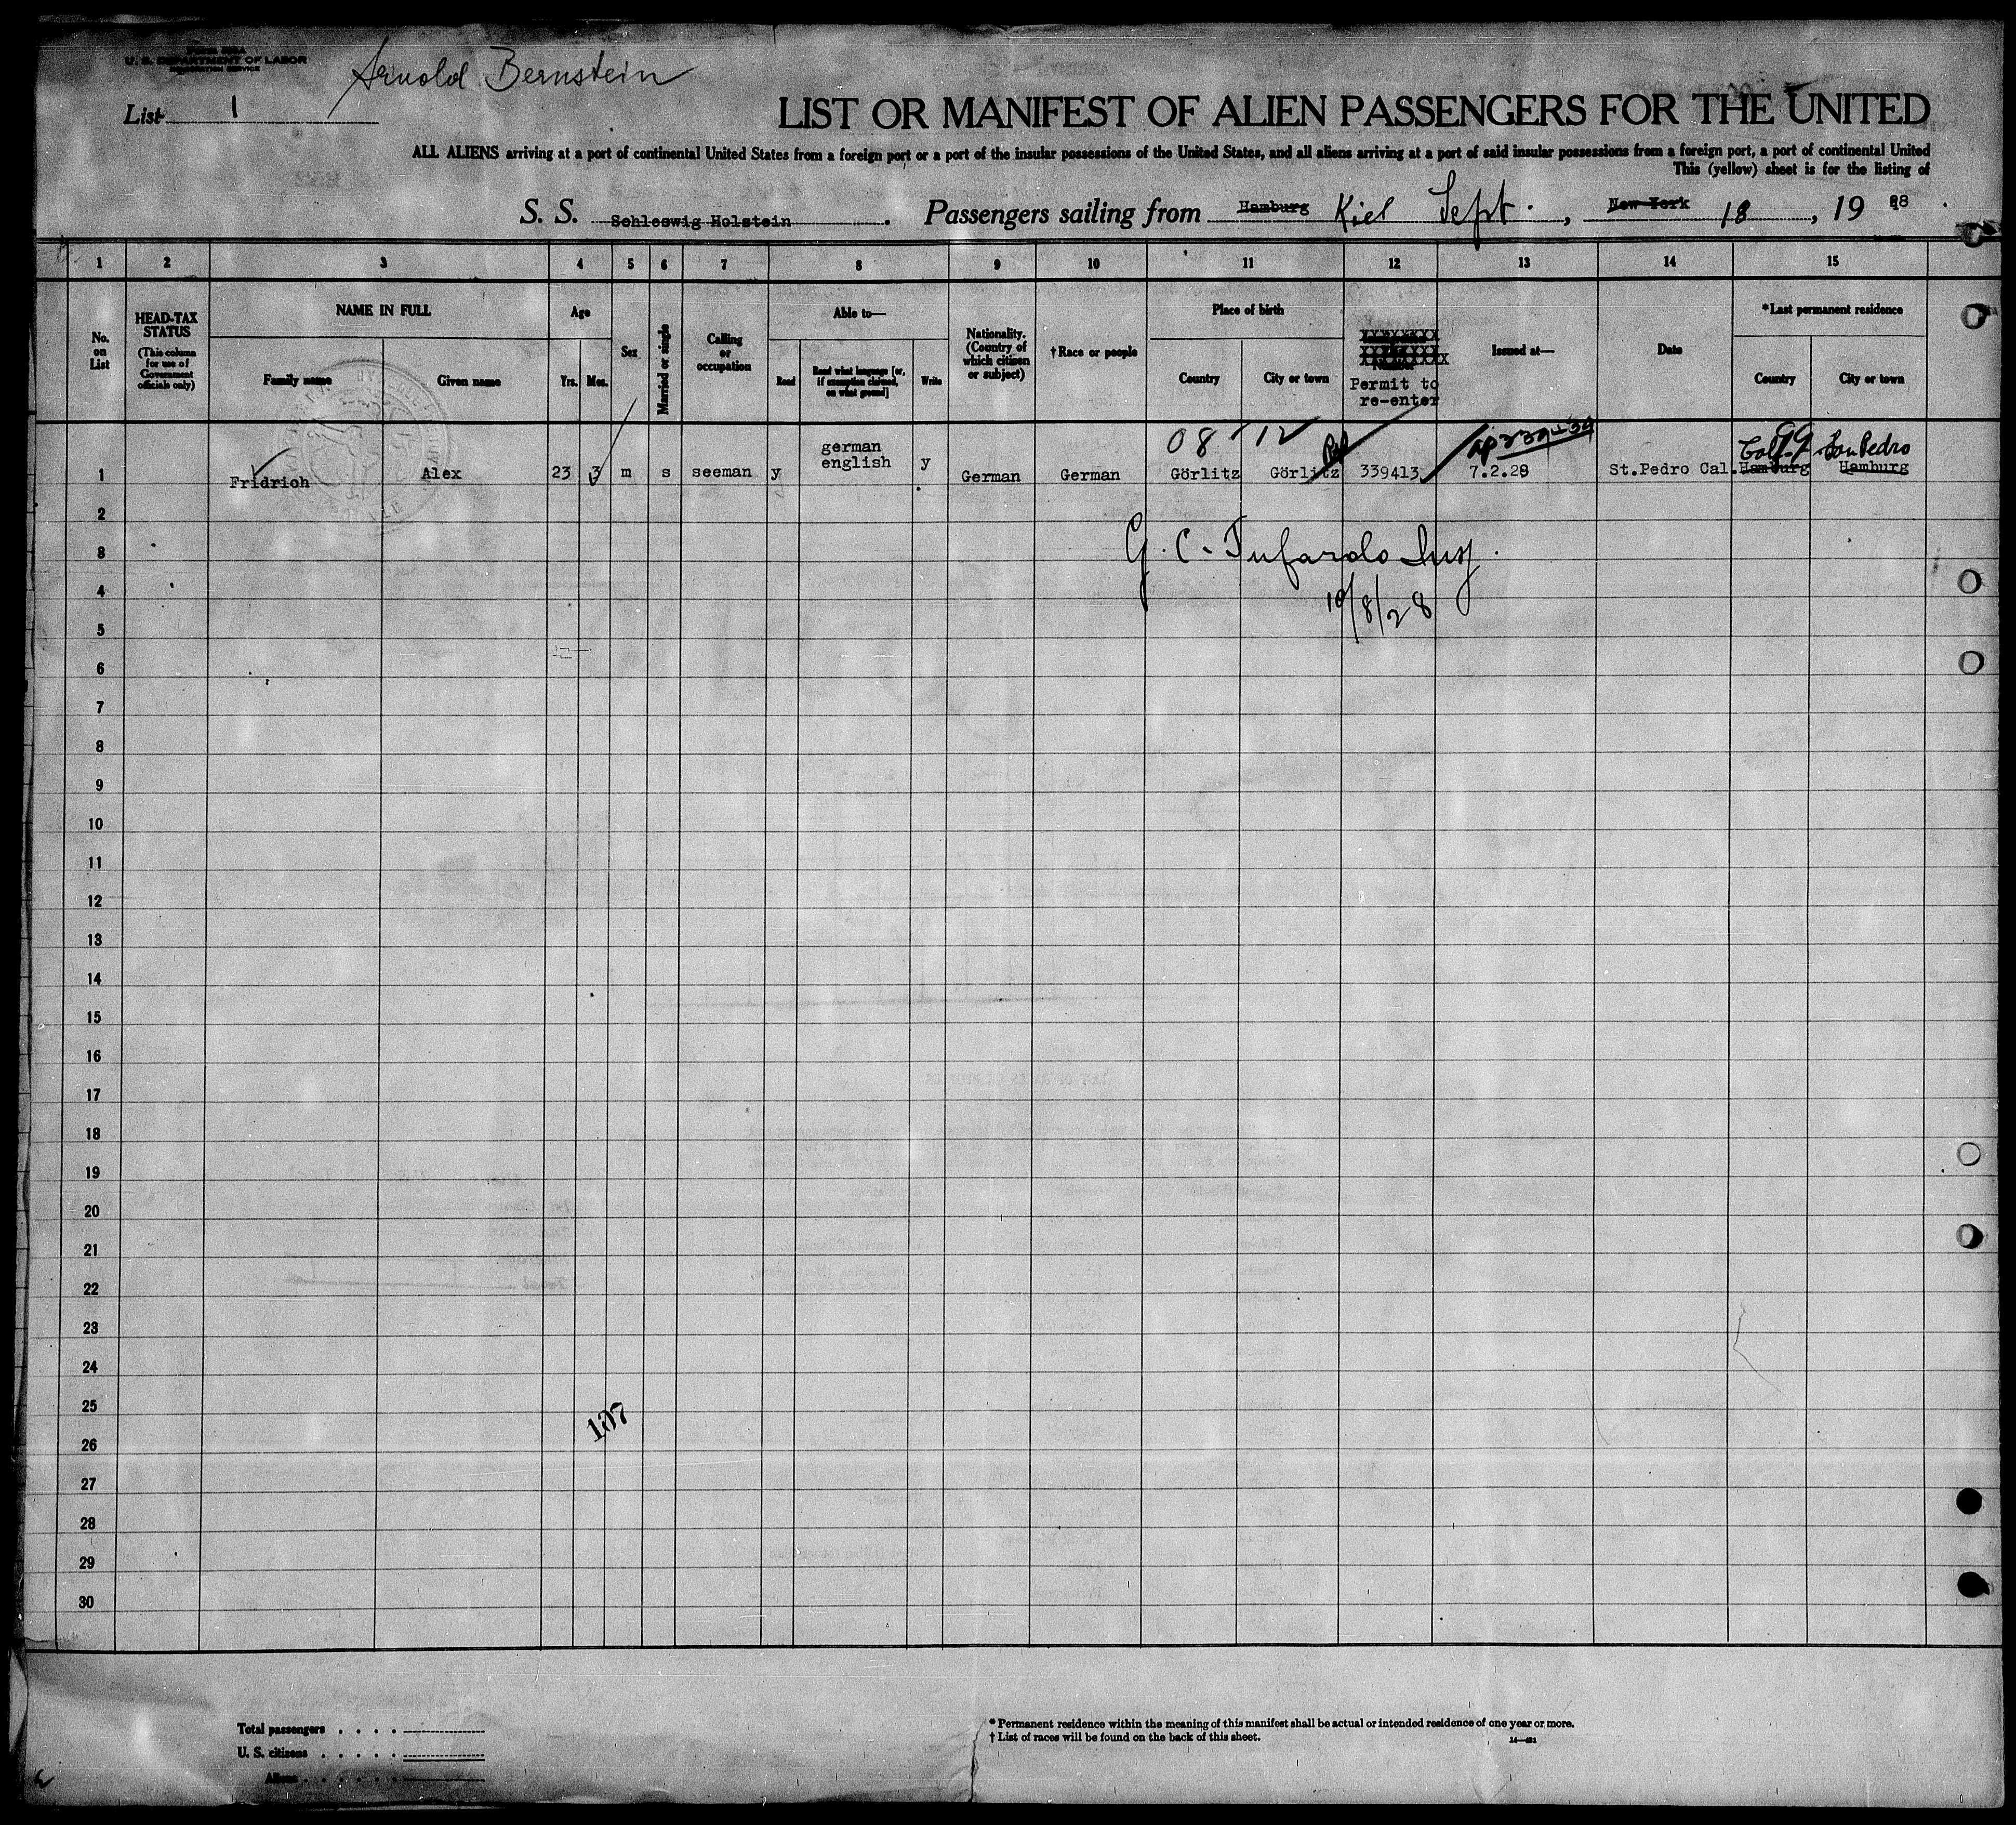 U. S. DEPARTMENT OF LABOR
IMMIGRATION SERVICE
Arnold Bernstein
List 1
LIST OR MANIFEST OF ALIEN PASSENGERS FOR THE UNITED
ALL ALIENS arriving at a port of continental United States from a foreign port or a port of the insular possessions of the United States, and all aliens arriving at a port of said insular possessions from a foreign port, a port of continental United
This (yellow) sheet is for the listing of
S. S. Schleswig Holstein . Passengers sailing from Hamburg Kiel Sept. , New York 18 , 19 28
1 2 3 4 5 6 7 8 9 10 11 12 13 14 15
No. on List
HEAD-TAX STATUS
(This column for use of Government officials only)
NAME IN FULL
Family name
Given name
Age
Yrs. Mos.
Sex
Married or single
Calling or occupation
Able to—
Read
Read what language [or, if exemption claimed, on what ground]
Write
Nationality. (Country of which citizen or subject)
† Race or people
Place of birth
Country
City or town
Number
Permit to
re-enter
Issued at—
Date
* Last permanent residence
Country
City or town
08 12
Calif. San Pedro
german
1 Fridrich Alex 23 3 m s seeman y english y German German Görlitz Görlitz 339413 7.2.28 St.Pedro Cal. Hamburg Hamburg
2
G. C. Tufarolo Insp.
3
4
10/8/28
5
6
7
8
9
10
11
12
13
14
15
16
17
18
19
20
21
22
23
24
25
107
26
27
28
29
30
Total passengers . . . .
U. S. citizens . . . . .
Aliens . . . . . .
* Permanent residence within the meaning of this manifest shall be actual or intended residence of one year or more.
† List of races will be found on the back of this sheet.